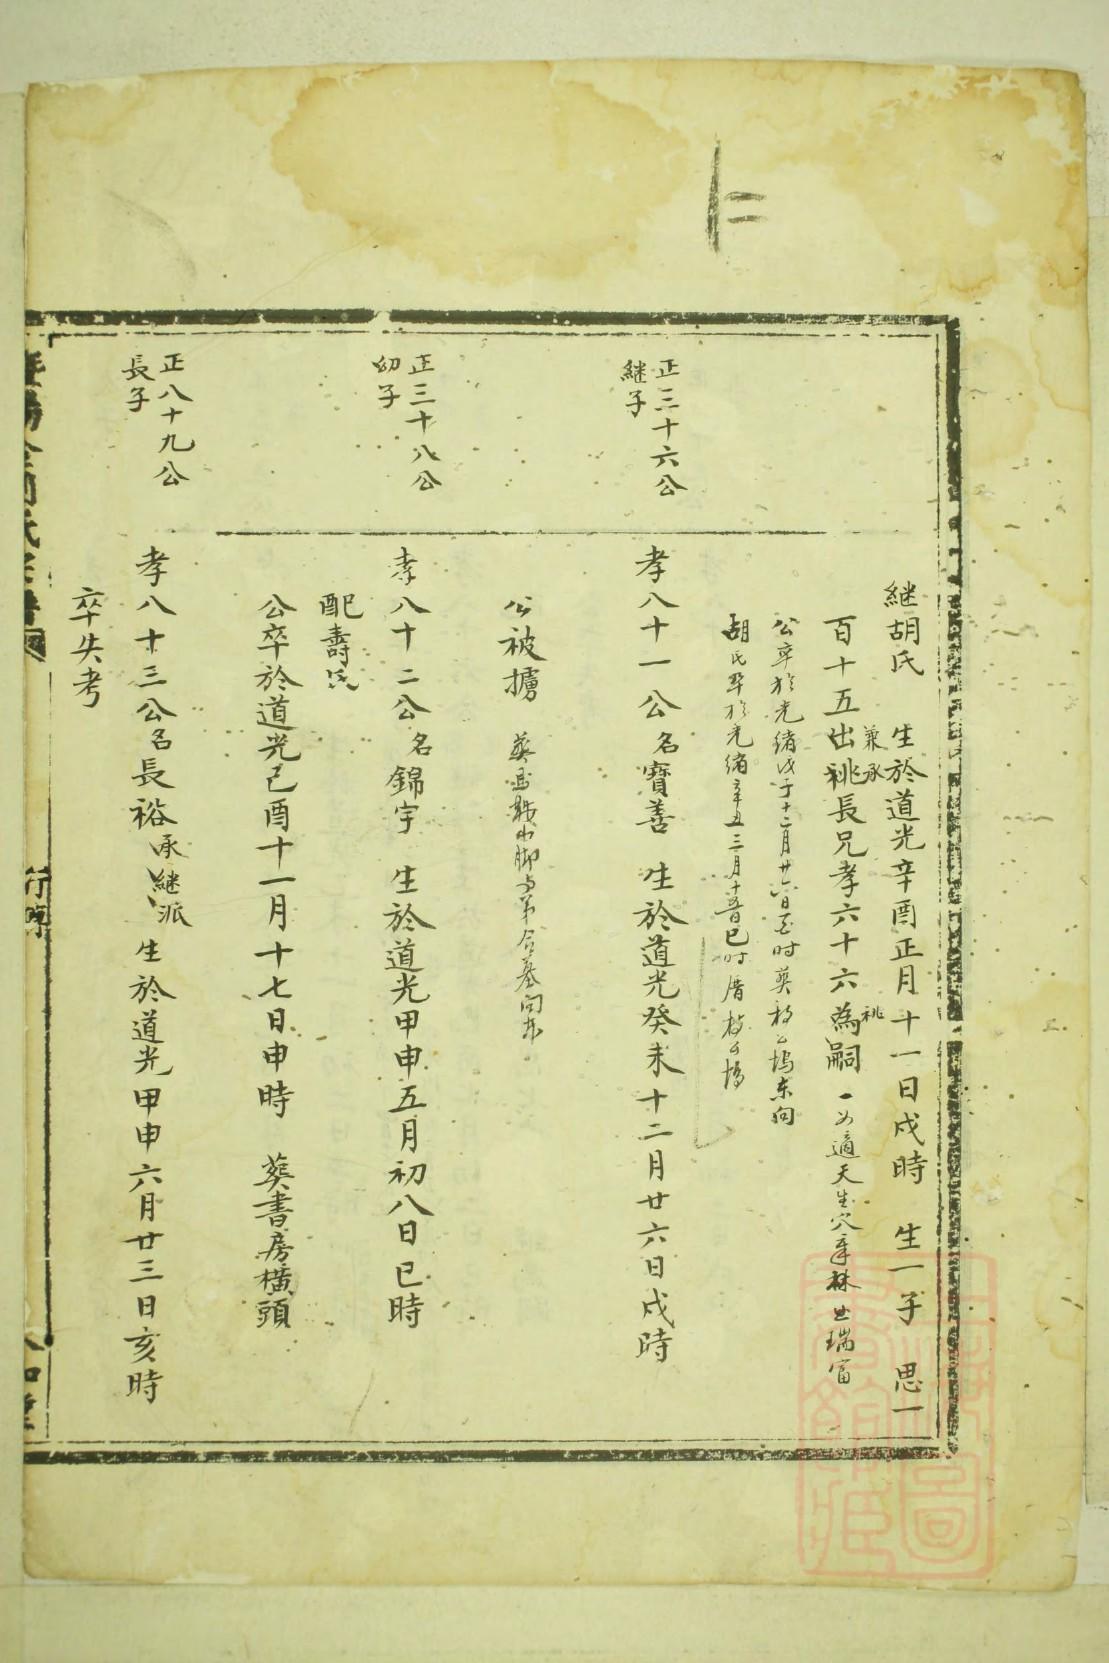 仁
継胡氏 生於道光辛酉正月十一日戌時 生一子 思一
兼承
祧
百十五出祧長兄孝六十六為嗣 一女適天生穴章林世瑞富
公卒於光緒戊子十二月廿六日 時葬 塢东向
胡氏卒於光緒辛丑三月十 日巳时厝
正三十六公
継子
孝八十一公名寶善 生於道光癸未十二月廿六日戌時
公被擄 葬 脚与弟合墓向
正三十八公
幼子
孝八十二公名錦宇 生於道光甲申五月初八日巳時
配壽氏
公卒於道光己酉十一月十七日申時 葬書房橫頭
正八十九公
長子
孝八十三公名長裕承継派 生於道光甲申六月廿三日亥時
卒失考
行